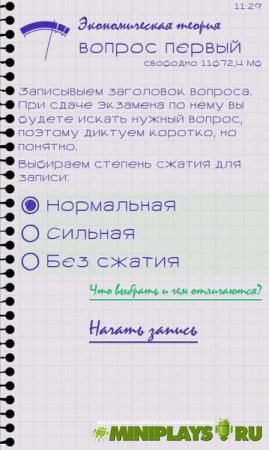 11:29
Экономическая теория
вопрос первый
свободно 11672,4 Мб
Записывыем заголовок вопроса.
При сдаче экзамена по нему вы
будете искать нужный вопрос,
поэтому диктуем коротко, но
понятно.
Выбираем степень сжатия для
записи:
Нормальная
Сильная
Без сжатия
Что выбрать и чем отличаются?
Начать запись
MINIPLAYS RU